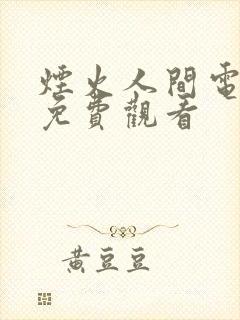 煙火人間電
免費觀看
黃豆豆